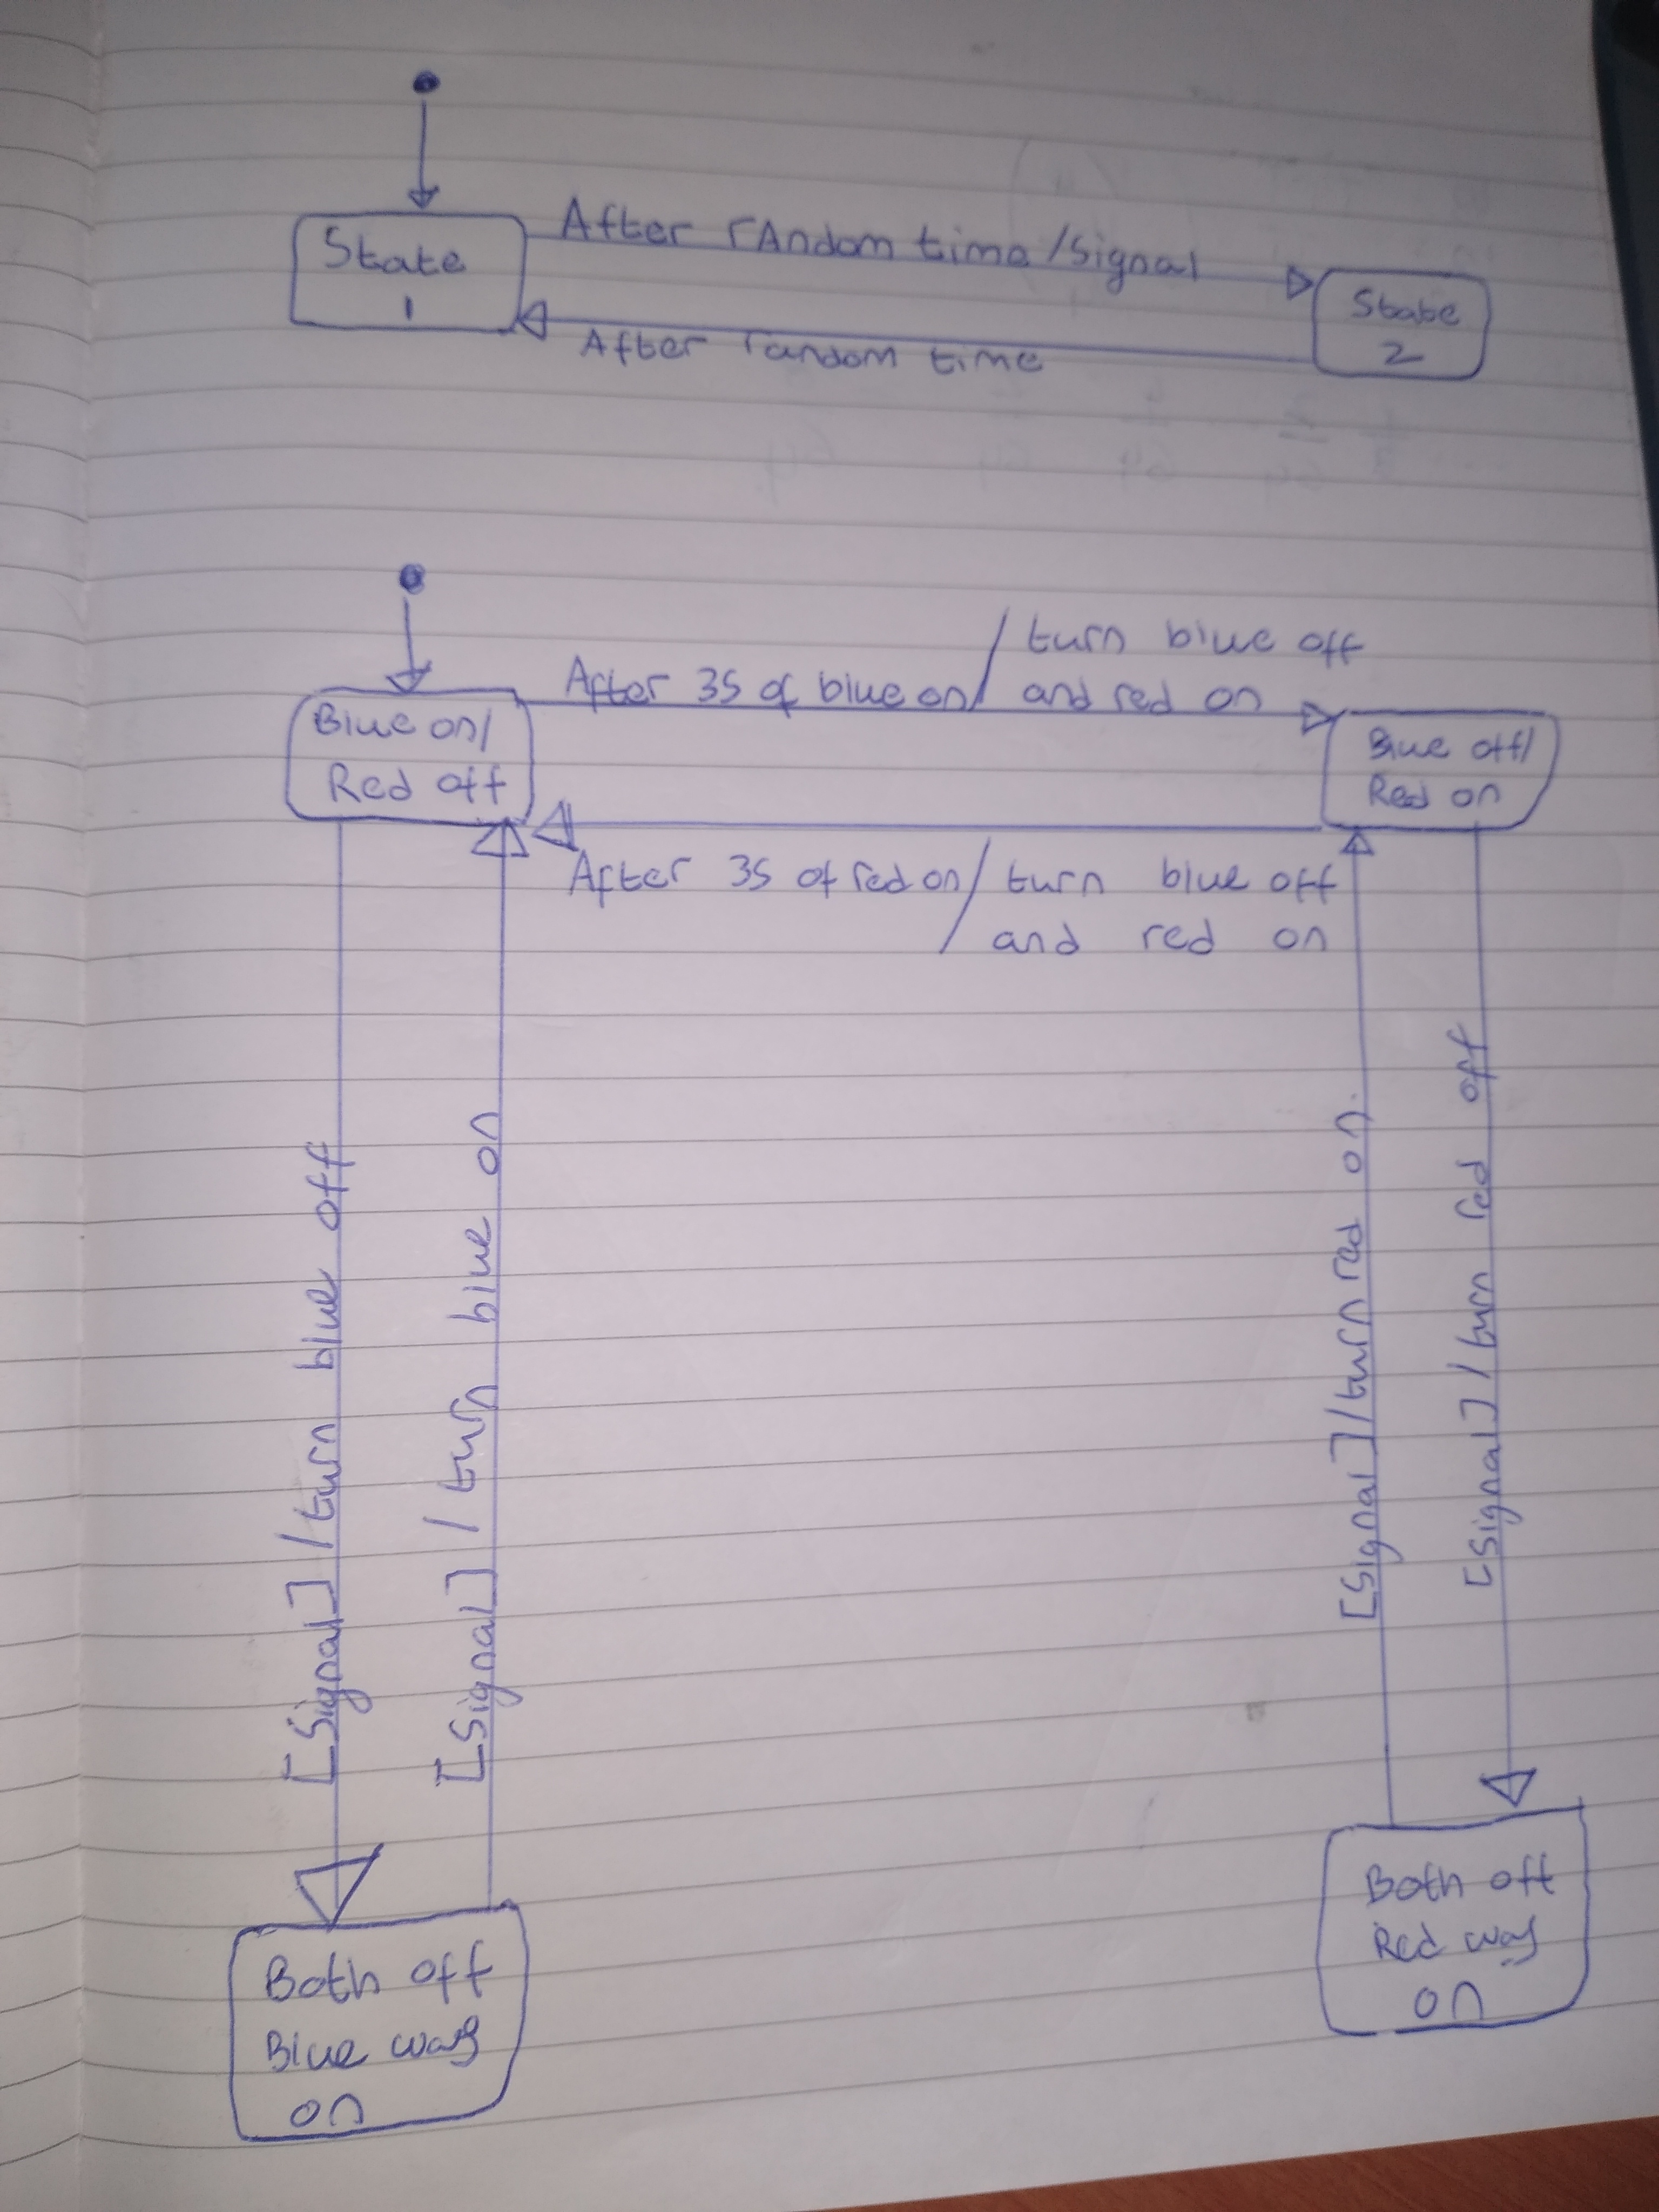 After rAndom time/signal
State
1
State
2
After random time
After 3s of blue on/ turn blue off
and red on
Blue on/
Red off
Blue off/
Red on
After 3s of red on/ turn blue off
and red on
[Signal] / turn blue off
[Signal] / turn blue on
[Signal] / turn red on.
[Signal] / turn red off
Both off
Blue way
on
Both off
Red way
on